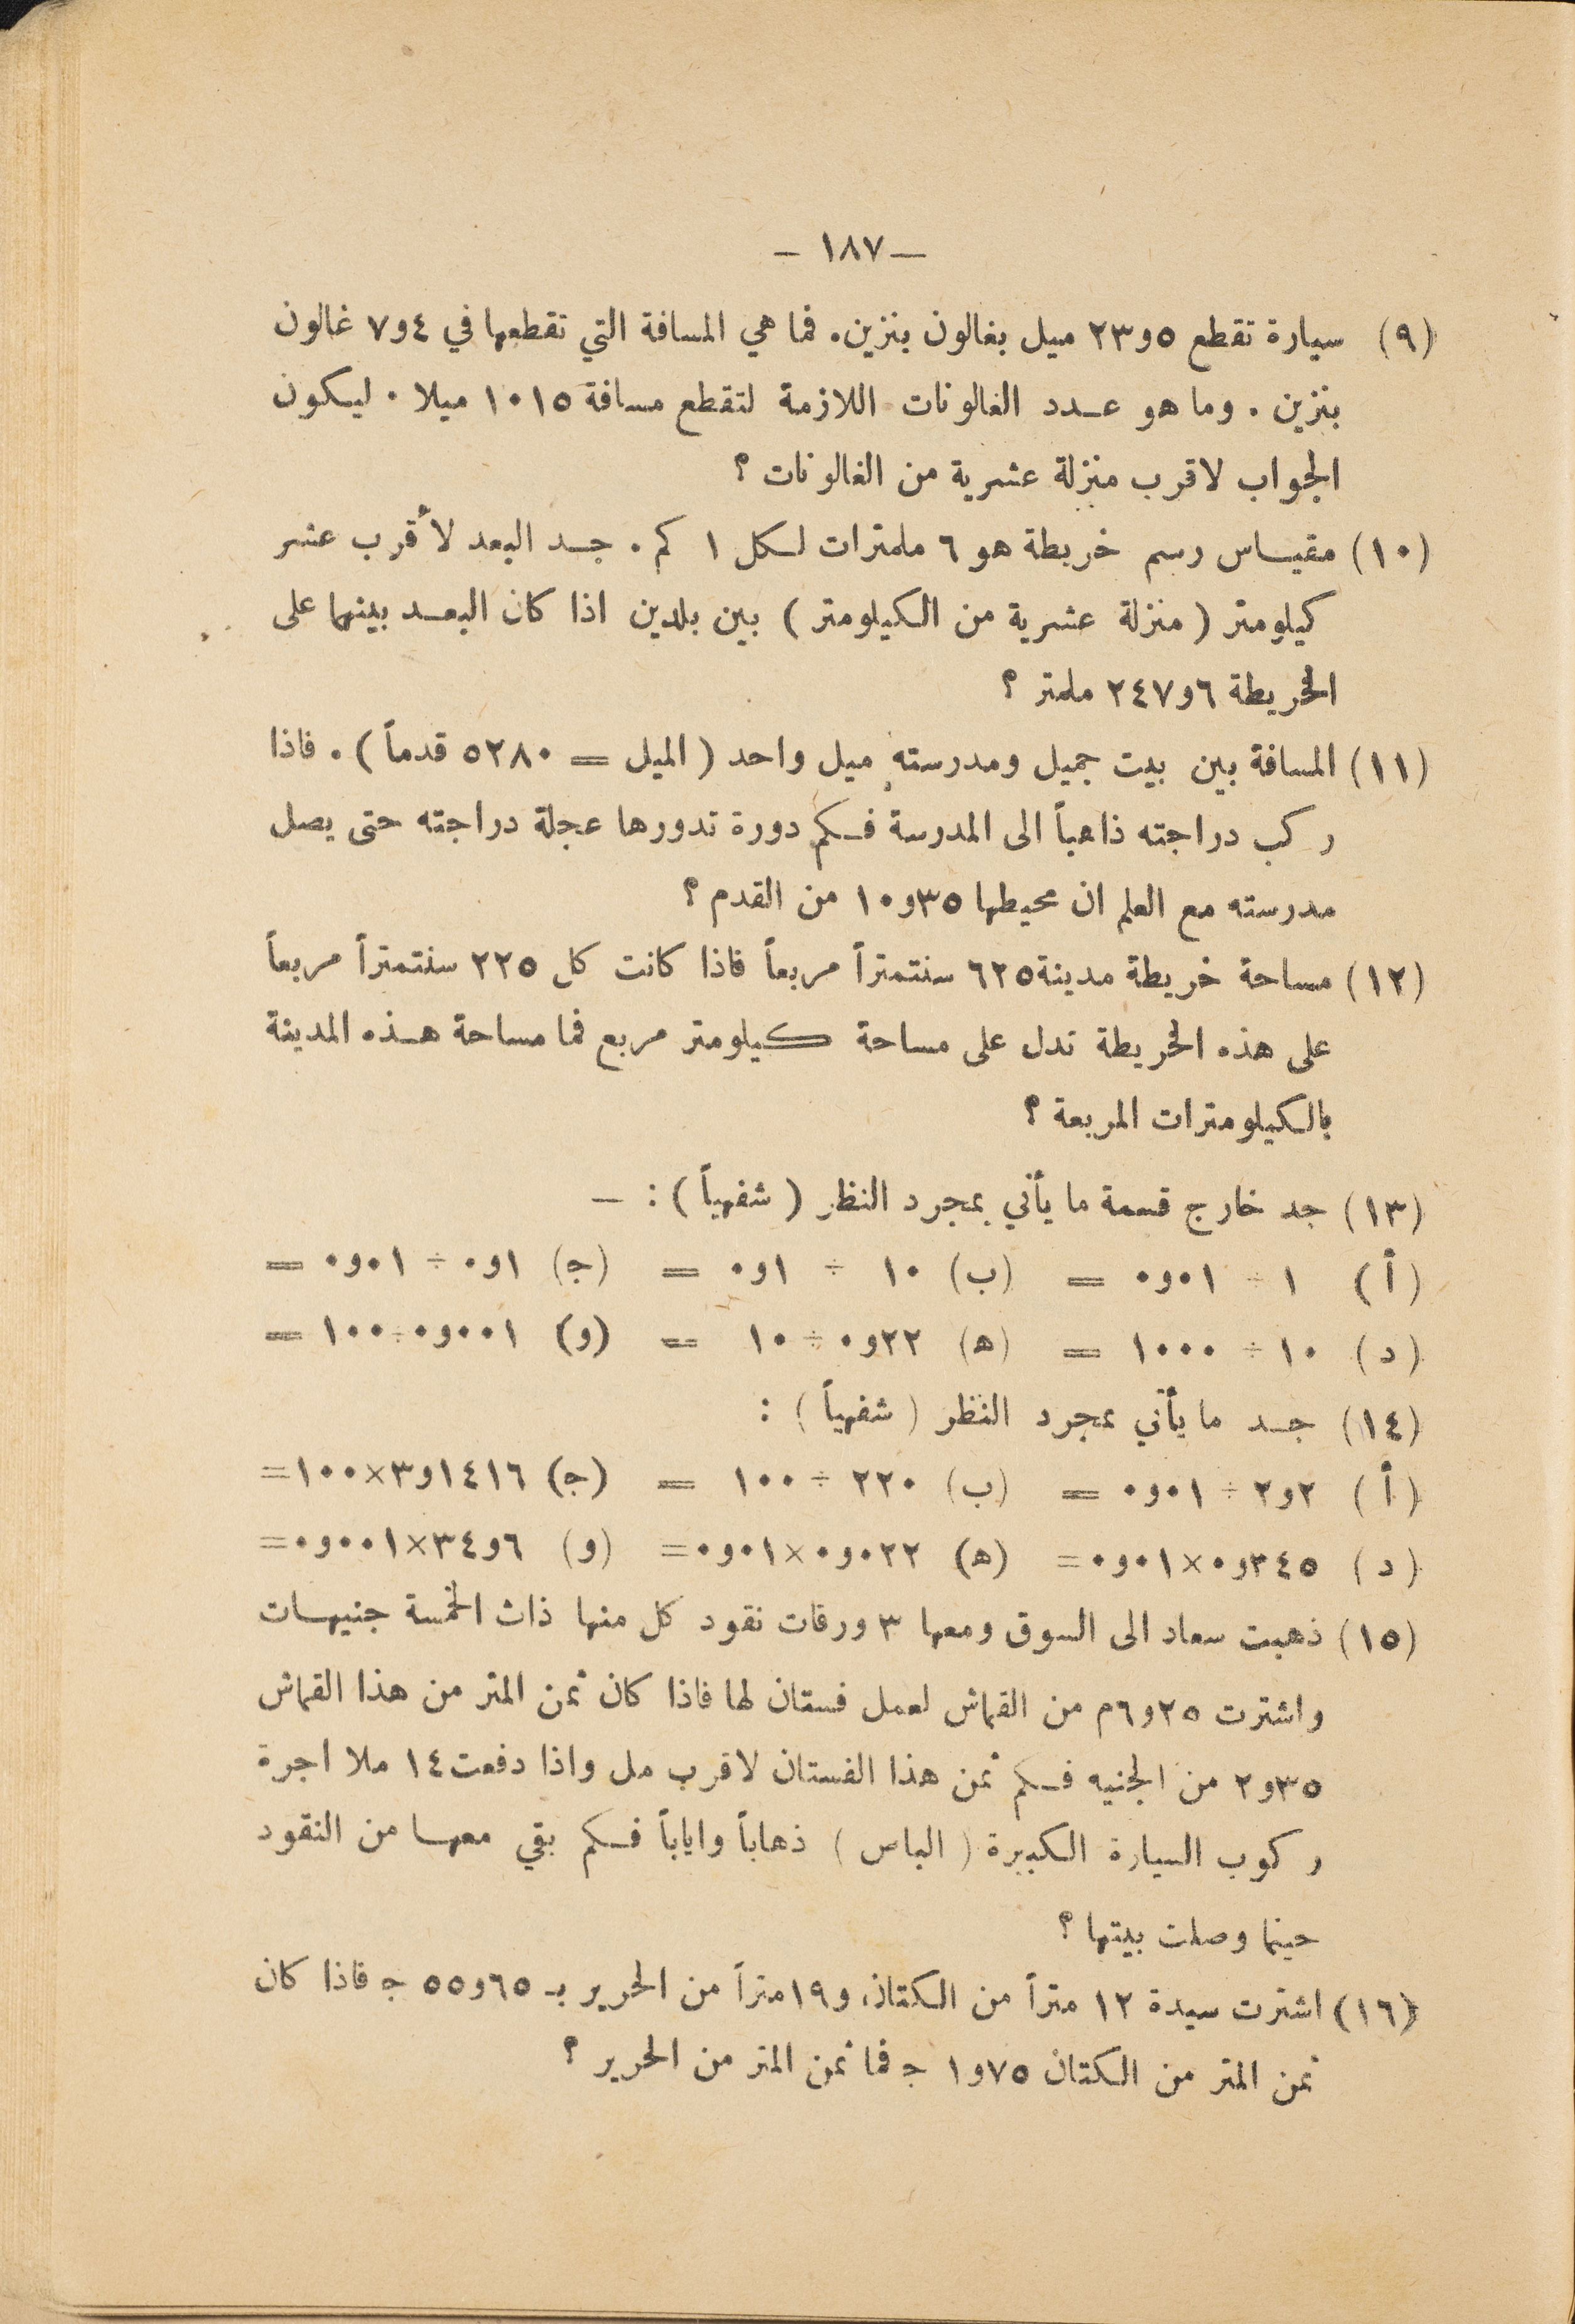 — ١٨٧ —
(٩) سيارة تقطع ٥و٢٣ ميل بغالون بنزين. فما هي المسافة التي تقطعها في ٤و٧ غالون
بنزين. وما هو عدد الغالونات اللازمة لتقطع مسافة ١٠١٥ ميلا. ليكون
الجواب لاقرب منزلة عشرية من الغالونات ؟
(١٠) مقياس رسم خريطة هو ٦ ملمترات لكل ١ كم. جد البعد لأقرب عشر
كيلومتر (منزلة عشرية من الكيلومتر) بين بلدين اذا كان البعد بينهما على
الخريطة ٦و٢٤٧ ملمتر ؟
(١١) المسافة بين بيت جميل ومدرسته ميل واحد (الميل = ٥٢٨٠ قدماً). فاذا
ركب دراجته ذاهباً الى المدرسة فكم دورة تدورها عجلة دراجته حتى يصل
مدرسته مع العلم ان محيطها ٣٥و١٠ من القدم ؟
(١٢) مساحة خريطة مدينة ٦٢٥ سنتمتراً مربعاً فاذا كانت كل ٢٢٥ سنتمتراً مربعاً
على هذه الخريطة تدل على مساحة كيلومتر مربع فما مساحة هذه المدينة
بالكيلومترات المربعة ؟
(١٣) جد خارج قسمة ما يأتي بمجرد النظر (شفهياً) : —
(أ) ١ ÷ ٠١و٠ = (ب) ١٠ ÷ ١و٠ = (ج) ١و٠ ÷ ٠١و٠ =
(د) ١٠ ÷ ١٠٠٠ = (ه) ٢٢و٠ ÷ ١٠ = (و) ٠٠١و٠ ÷ ١٠٠ =
(١٤) جد ما يأتي بمجرد النظر (شفهياً) :
(أ) ٢و٢ ÷ ٠١و٠ = (ب) ٢٢٠ ÷ ١٠٠ = (ج) ١٤١٦و٣×١٠٠=
(د) ٣٤٥و٠×٠١و٠= (ه) ٠٢٢و٠×٠١و٠= (و) ٦و٣٤×٠٠١و٠=
(١٥) ذهبت سعاد الى السوق ومعها ٣ ورقات نقود كل منها ذات الخمسة جنيهات
واشترت ٢٥و٦م من القماش لعمل فستان لها فاذا كان ثمن المتر من هذا القماش
٣٥و٢ من الجنيه فكم ثمن هذا الفستان لاقرب مل واذا دفعت ١٤ ملا اجرة
ركوب السيارة الكبيرة (الباص) ذهاباً واياباً فكم بقي معها من النقود
حينما وصلت بيتها ؟
(١٦) اشترت سيدة ١٢ متراً من الكتان، و١٩ متراً من الحرير بـ ٦٥و٥٥ ج فاذا كان
ثمن المتر من الكتان ٧٥و١ ج فما ثمن المتر من الحرير ؟